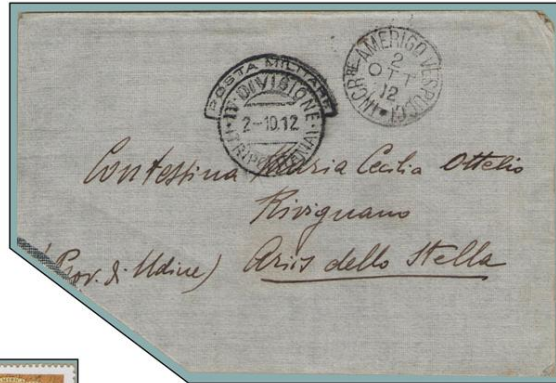 POSTA MILITARE
DIVISIONE
2-10.12
INCR.RE AMERIGO VESPUCCI
2
OTT
12
Contessina Maria Cecilia Ottelio
Rivignano
(Prov. di Udine) Ariis dello Stella